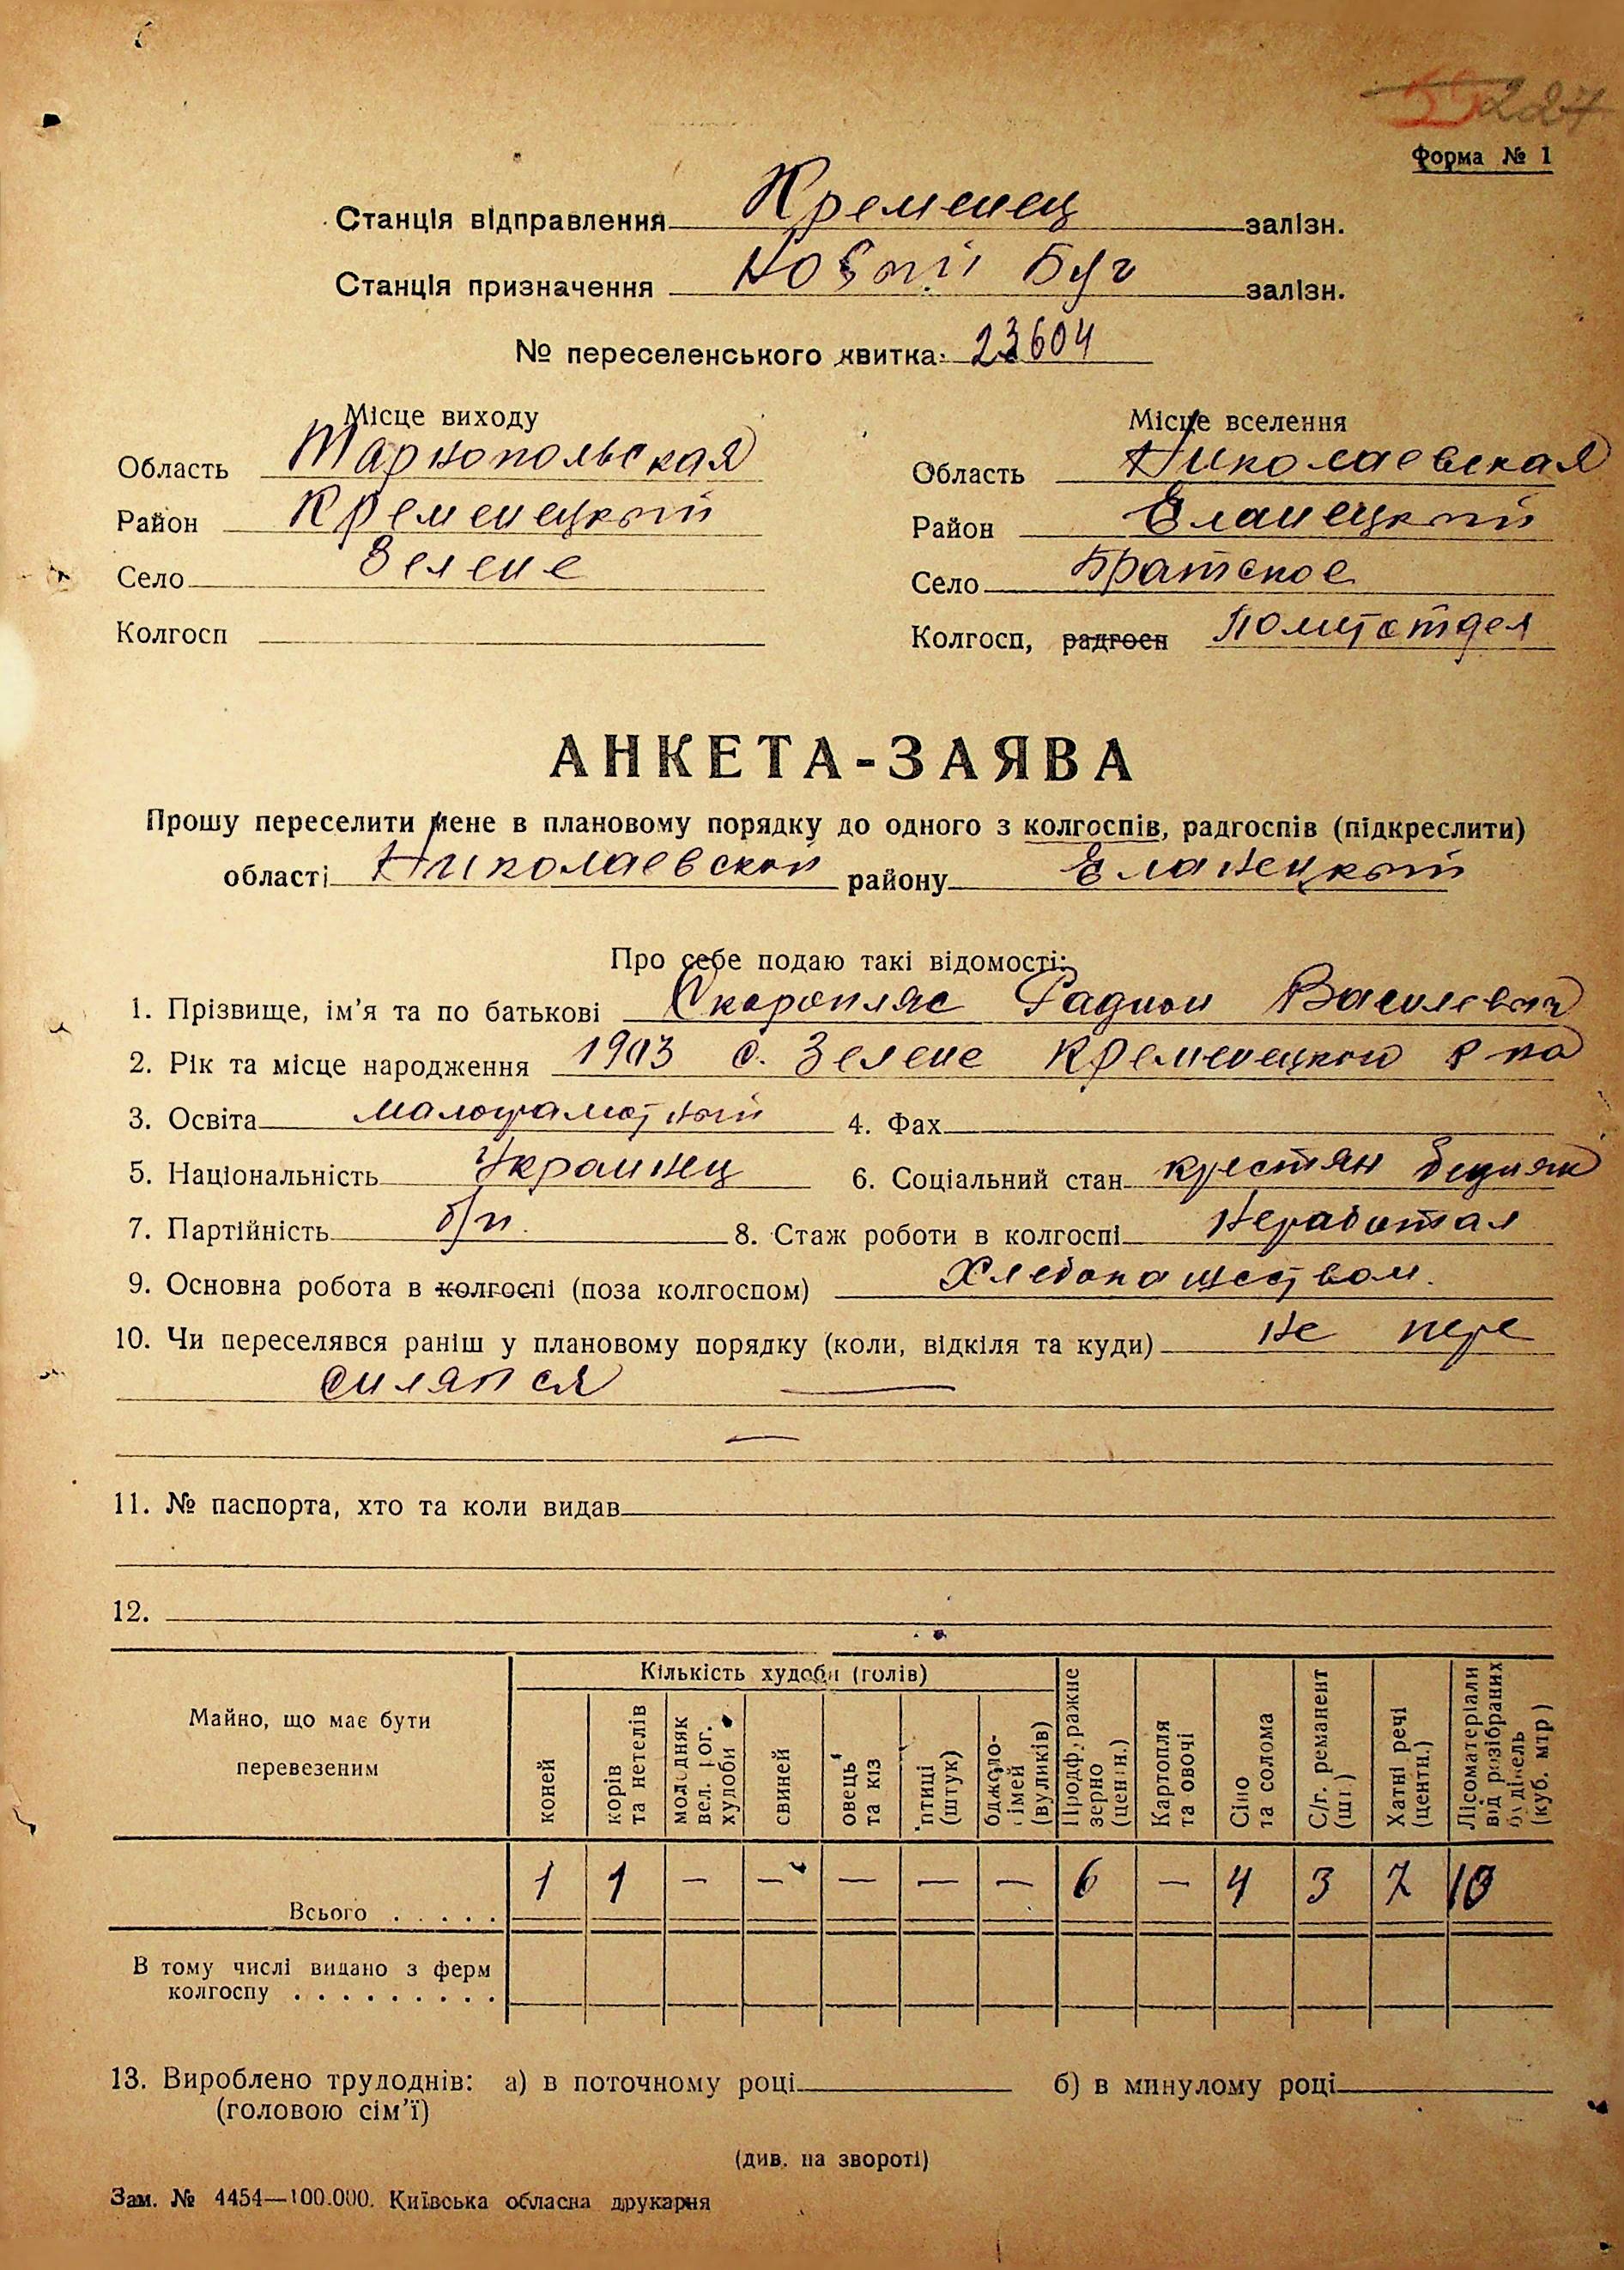 55 227
Форма № 1
Станція відправлення Кременец залізн.
Станція призначення Новый Буг залізн.
№ переселенського квитка 23604
Місце виходу
Область Тарнопольская
Район Кременецкий
Село Зелене
Колгосп
Місце вселення
Область Николаевская
Район Еланецкий
Село Братское
Колгосп, радгосп Политотдел
АНКЕТА-ЗАЯВА
Прошу переселити мене в плановому порядку до одного з колгоспів, радгоспів (підкреслити)
області Николаевской району Еланецкий
Про себе подаю такі відомості:
1. Прізвище, ім'я та по батькові Скоропляс Радион Василевич
2. Рік та місце народження 1903 с. Зелене Кременецкого р на
3. Освіта малограмотный 4. Фах
5. Національність Украинец 6. Соціальний стан крестян бедняк
7. Партійність б/п. 8. Стаж роботи в колгоспі Неработал
9. Основна робота в колгоспі (поза колгоспом) Хлебопашеством.
10. Чи переселявся раніш у плановому порядку (коли, відкіля та куди) Не пере
силялся —
—
11. № паспорта, хто та коли видав
12.
Майно, що має бути перевезеним
Кількість худоби (голів)
коней
корів та нетелів
молодняк вел. рог. худоби
свиней
овець та кіз
птиці (штук)
бджоло-сімей (вуликів)
Продфуражне зерно (центн.)
Картопля та овочі
Сіно та солома
С/г. реманент (шт.)
Хатні речі (центн.)
Лісоматеріали від розібраних будівель (куб. мтр)
Всього . . . . . 1 1 — — — — — 6 — 4 3 7 10
В тому числі видано з ферм
колгоспу . . . . . . . . .
13. Вироблено трудоднів: а) в поточному році б) в минулому році
(головою сім'ї)
(див. на звороті)
Зам. № 4454—100.000. Київська обласна друкарня